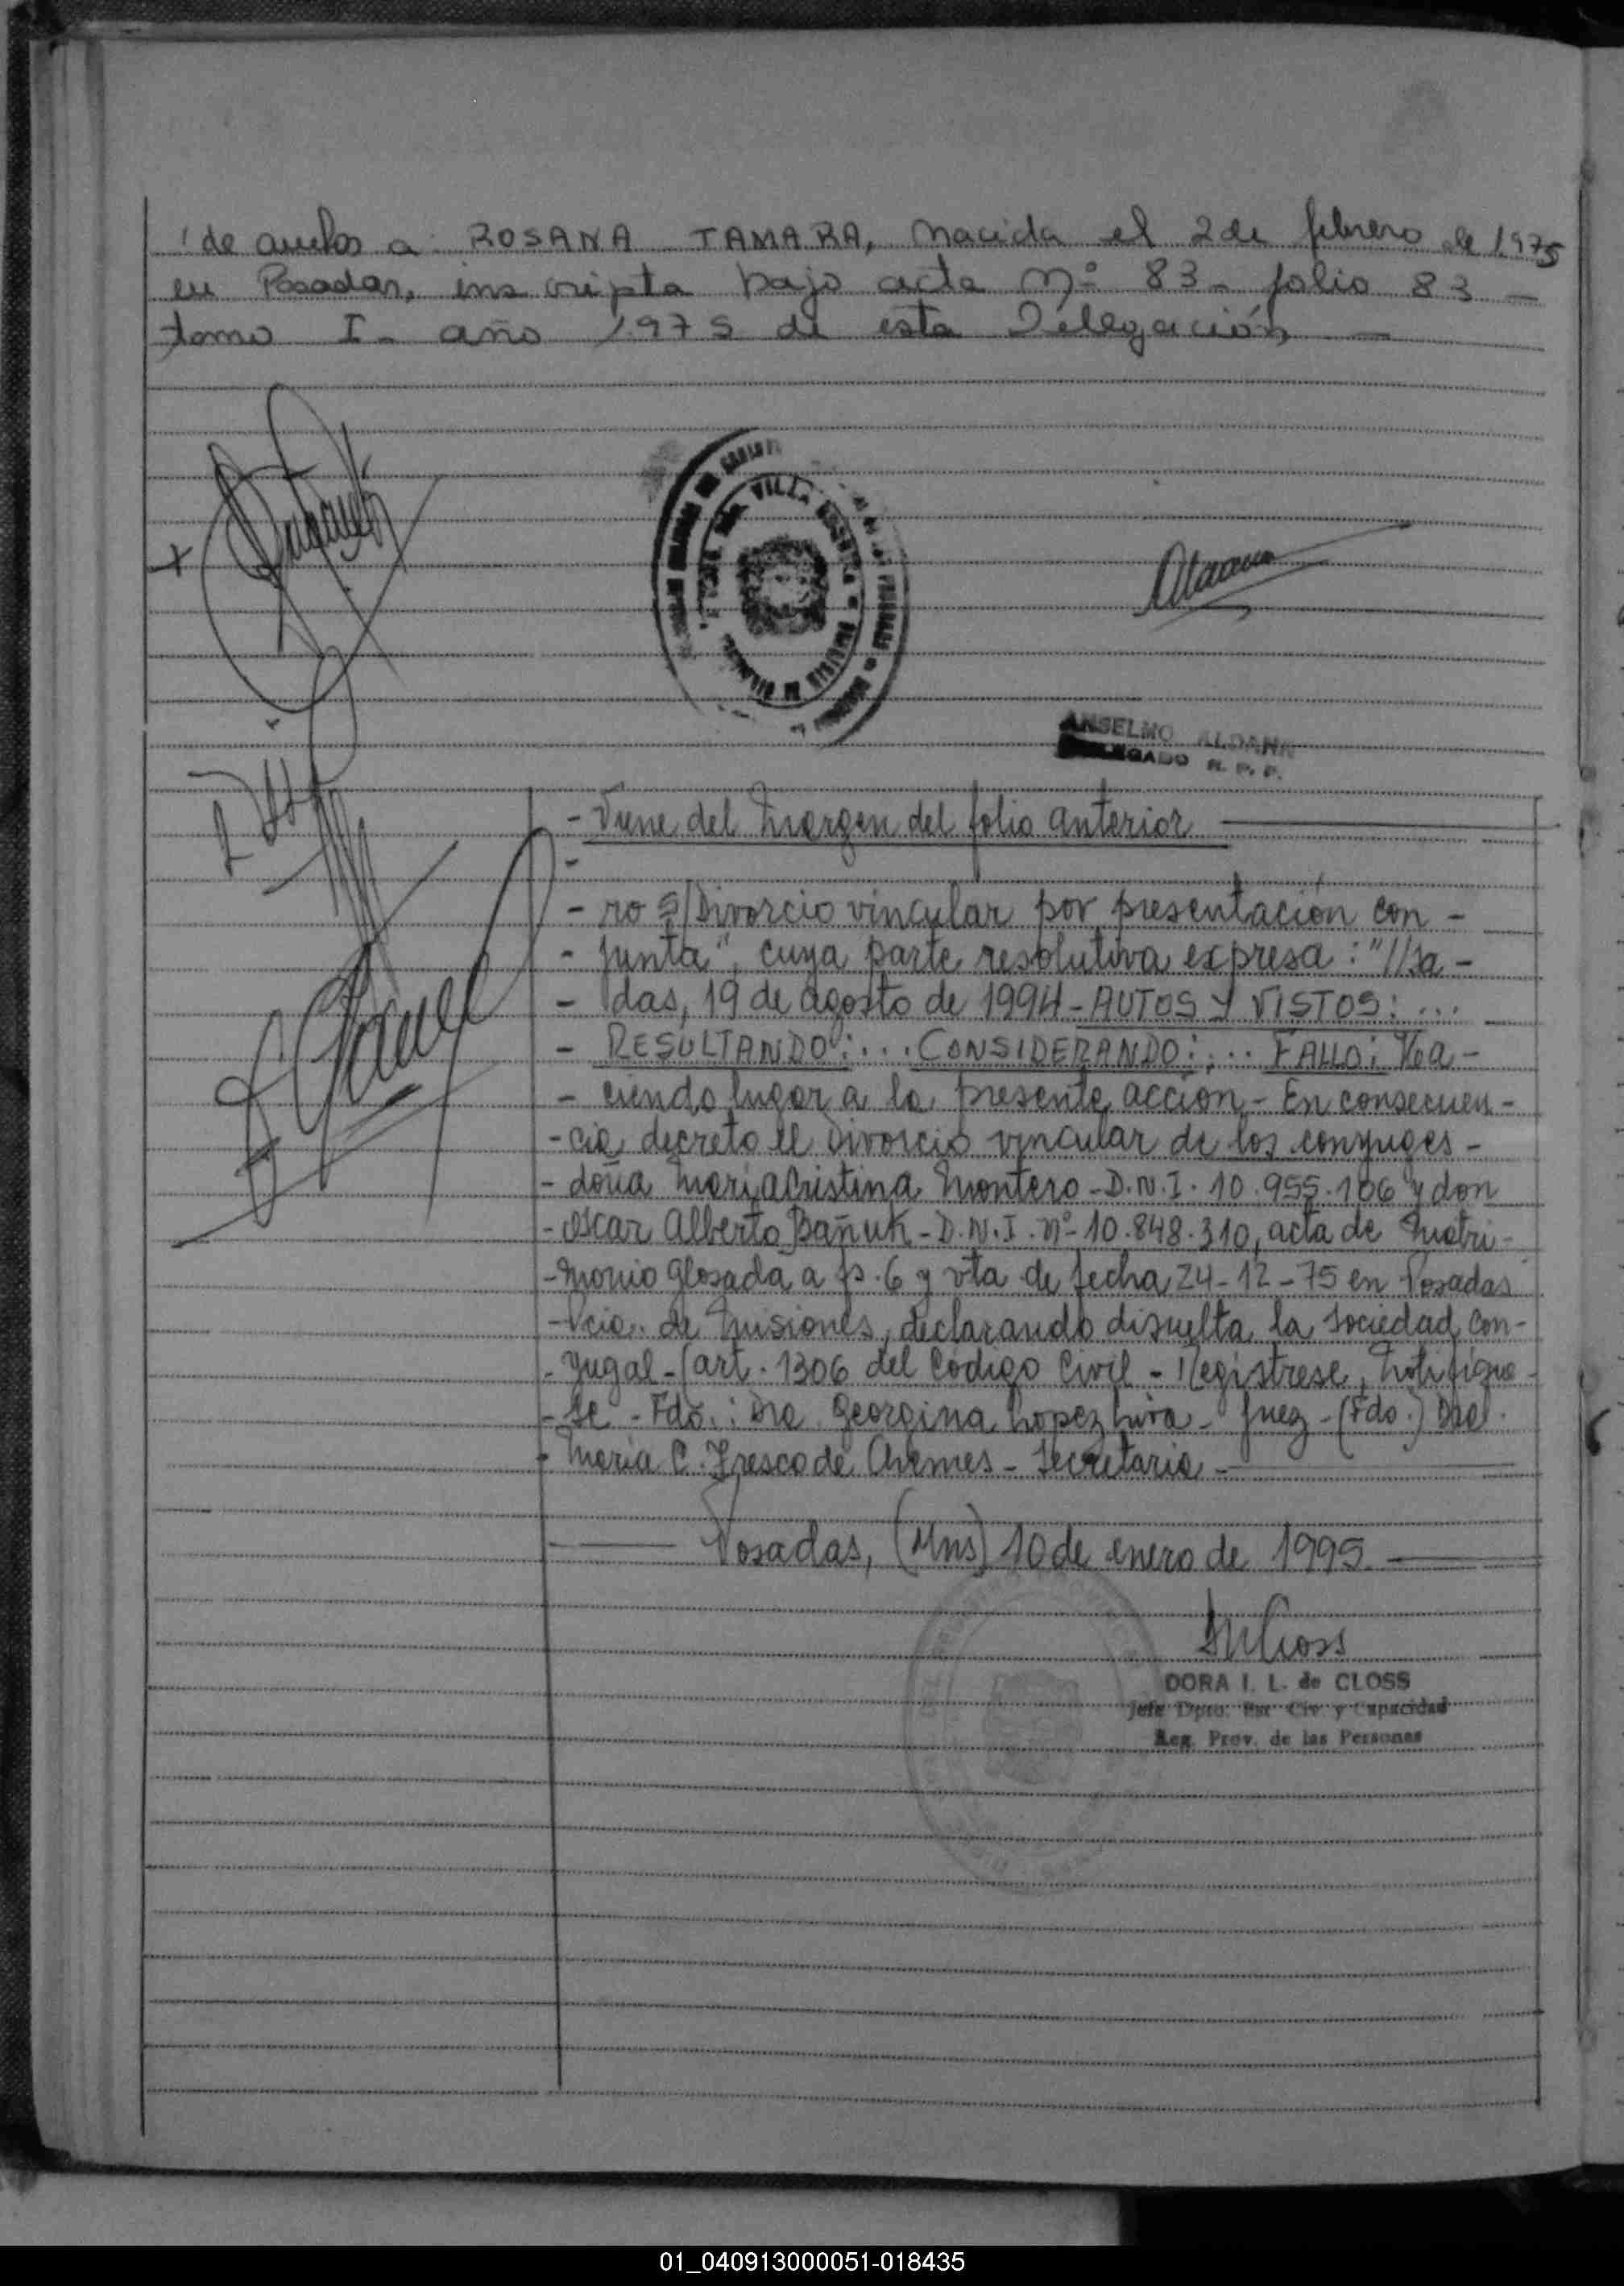 de ambos a ROSANA TAMARA, nacida el 2 de febrero de 1975
en Posadas, inscripta bajo acta Nº 83 - folio 83 -
tomo I - año 1975 de esta Delegación -
VILLA
ANSELMO ALDANA
DELEGADO R. P. P.
- Viene del Margen del folio anterior
-
- ro S/Divorcio vincular por presentación con -
- junta", cuya parte resolutiva expresa: "//sa -
- das, 19 de agosto de 1994 - AUTOS Y VISTOS: ...
- RESULTANDO: ... CONSIDERANDO: ... FALLO: Ha -
- ciendo lugar a la presente acción - En consecuen -
- cia decreto el Divorcio vincular de los conyuges -
- doña María Cristina Montero - D.N.I. 10.955.106 y don
- Oscar Alberto Bañuk - D.N.I. Nº 10.848.310, acta de Matri -
- monio Glosada a fs. 6 y vta de fecha 24-12-75 en Posadas
- Pcia. de Misiones, declarando disuelta la sociedad con -
- yugal - (art. 1306 del Código Civil - Regístrese, Notifíque -
- se - Fdo.: Dra Georgina Lopez Liva - Juez - (Fdo.) Dra.
- María C. Fresco de - Secretaria -
Posadas, (Mns) 10 de enero de 1995
DORA I. L. de CLOSS
Jefe Dpto. Est Civ. y Capacidad
Reg. Prov. de las Personas
01_040913000051-018435